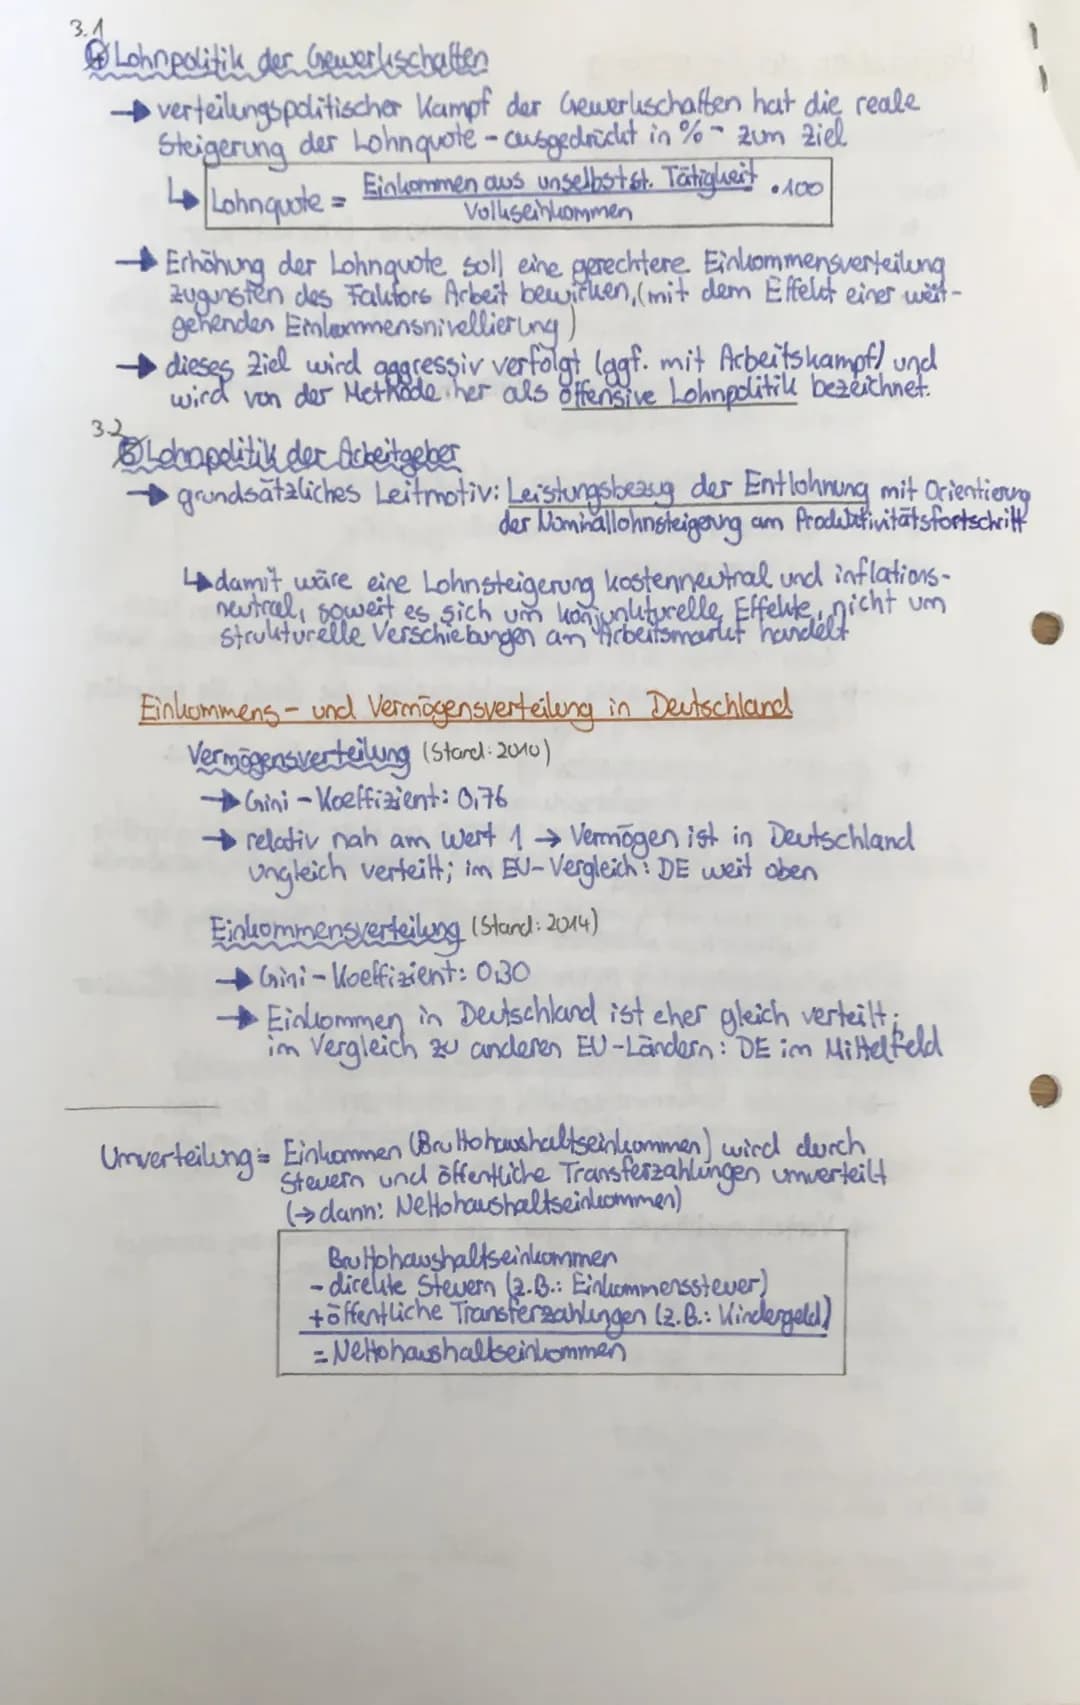 3.1
Lohnpolitik der Gewerkschaften
→ verteilungspolitischer Kampf der Gewerkschaften hat die reale
Steigerung der Lohnquote - ausgedrückt in % - zum Ziel
↳ Lohnquote = Einkommen aus unselbstst. Tätigkeit · 100
Volkseinkommen
→ Erhöhung der Lohnquote soll eine gerechtere Einkommensverteilung
zugunsten des Faktors Arbeit bewirken, (mit dem Effekt einer weit-
gehenden Einkommensnivellierung)
→ dieses Ziel wird aggressiv verfolgt (ggf. mit Arbeitskampf) und
wird von der Methode her als offensive Lohnpolitik bezeichnet.
3.2
Lohnpolitik der Arbeitgeber
→ grundsätzliches Leitmotiv: Leistungsbezug der Entlohnung mit Orientierung
der Nominallohnsteigerung am Produktivitätsfortschritt
↳ damit wäre eine Lohnsteigerung kostenneutral und inflations-
neutral, soweit es sich um konjunkturelle Effekte, nicht um
strukturelle Verschiebungen am Arbeitsmarkt handelt
Einkommens- und Vermögensverteilung in Deutschland
Vermögensverteilung (Stand: 2010)
→ Gini-Koeffizient: 0,76
→ relativ nah am Wert 1 → Vermögen ist in Deutschland
ungleich verteilt; im EU-Vergleich: DE weit oben
Einkommensverteilung (Stand: 2014)
→ Gini-Koeffizient: 0,30
→ Einkommen in Deutschland ist eher gleich verteilt;
im Vergleich zu anderen EU-Ländern: DE im Mittelfeld
Umverteilung = Einkommen (Bruttohaushaltseinkommen) wird durch
Steuern und öffentliche Transferzahlungen umverteilt
(→ dann: Nettohaushaltseinkommen)
Bruttohaushaltseinkommen
- direkte Steuern (z.B.: Einkommenssteuer)
+ öffentliche Transferzahlungen (z.B.: Kindergeld)
= Nettohaushaltseinkommen